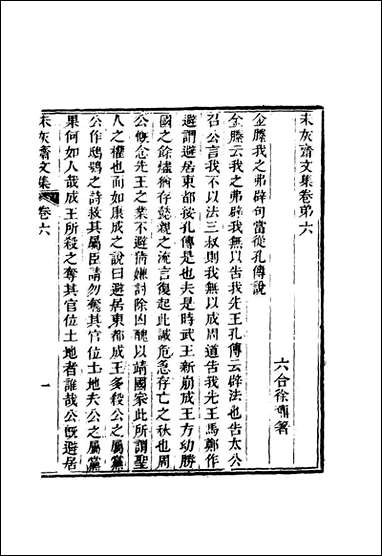 未灰齋文集卷第六
六合徐鼒著
金縢我之弗辟句當從孔傳說
金縢云我之弗辟我無以告我先王孔傳云辟法也告太公
召公言我不以法三叔則我無以成周道告我先王馬鄭作
避謂避居東都按孔傳是也夫是時武王新崩成王方幼勝
國之餘燼猶存懿親之流言復起此誠危急存亡之秋也周
公慨念先王之業不避猜嫌討除凶醜以靖國家此所謂聖
人之權也而如康成之說曰避居東都成王多殺公之屬黨
公作鴟鴞之詩救其屬臣請勿奪其官位土地夫公之屬黨
果何如人哉成王所殺之奪其官位土地者誰哉公既避居
未灰齋文集
卷六
一